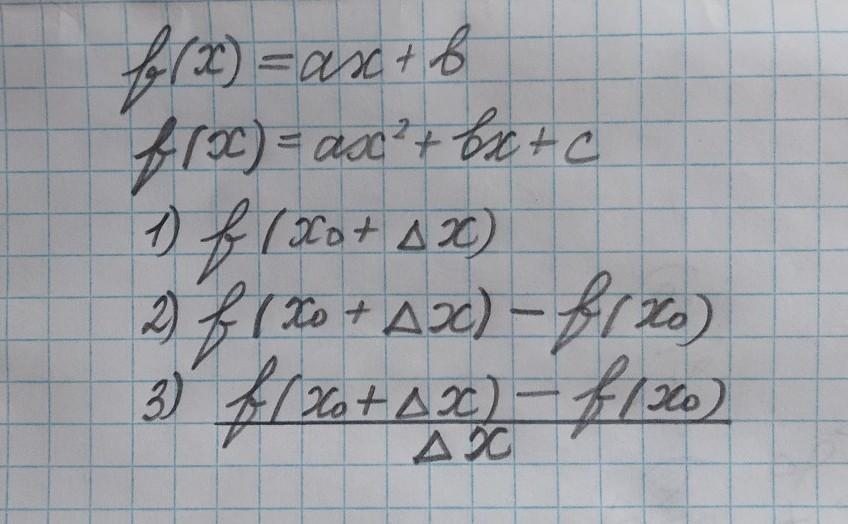 f(x) = ax + b
f(x) = ax² + bx + c
1) f(x₀ + Δx)
2) f(x₀ + Δx) - f(x₀)
3) f(x₀ + Δx) - f(x₀)
Δx